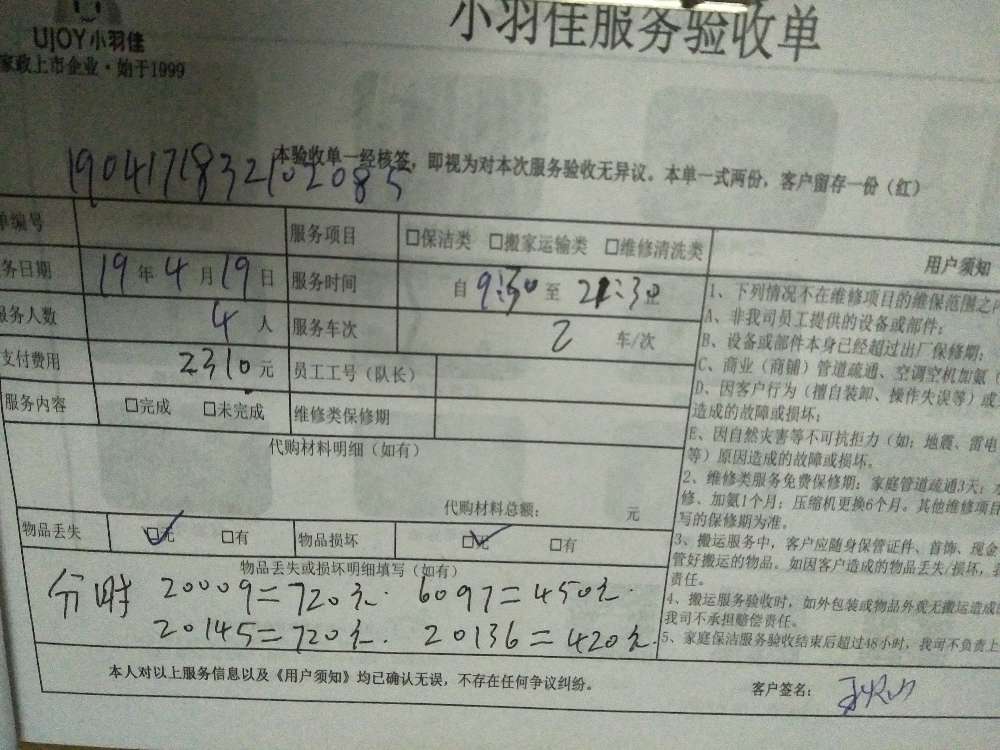 UJOY小羽佳
家政上市企业·始于1999
小羽佳服务验收单
1904171832102085
本验收单一经核签，即视为对本次服务验收无异议。本单一式两份，客户留存一份（红）
单编号 服务项目 □保洁类 □搬家运输类 □维修清洗类
务日期 19年4月19日 服务时间 自9:30至21:30
服务人数 4人 服务车次 2 车/次
支付费用 2310元 员工工号（队长）
服务内容 □完成 □未完成 维修类保修期
代购材料明细（如有）
代购材料总额： 元
物品丢失 □无 □有 物品损坏 □无 □有
物品丢失或损坏明细填写（如有）
分时 20009=720元. 6097=450元.
20145=720元. 20136=420元.
本人对以上服务信息以及《用户须知》均已确认无误，不存在任何争议纠纷。
客户签名：
用户须知
1、下列情况不在维修项目的维保范围之
A、非我司员工提供的设备或部件；
B、设备或部件本身已经超过出厂保修期；
C、商业（商铺）管道疏通、空调空机加氨（
D、因客户行为（擅自装卸、操作失误等）或
造成的故障或损坏；
E、因自然灾害等不可抗拒力（如：地震、雷电
等）原因造成的故障或损坏。
2、维修类服务免费保修期：家庭管道疏通3天；
修、加氨1个月；压缩机更换6个月。其他维修项目
写的保修期为准。
3、搬运服务中，客户应随身保管证件、首饰、现金
管好搬运的物品。如因客户造成的物品丢失/损坏，
责任。
4、搬运服务验收时，如外包装或物品外观无搬运造成
我司不承担赔偿责任。
5、家庭保洁服务验收结束后超过48小时，我司不负责上